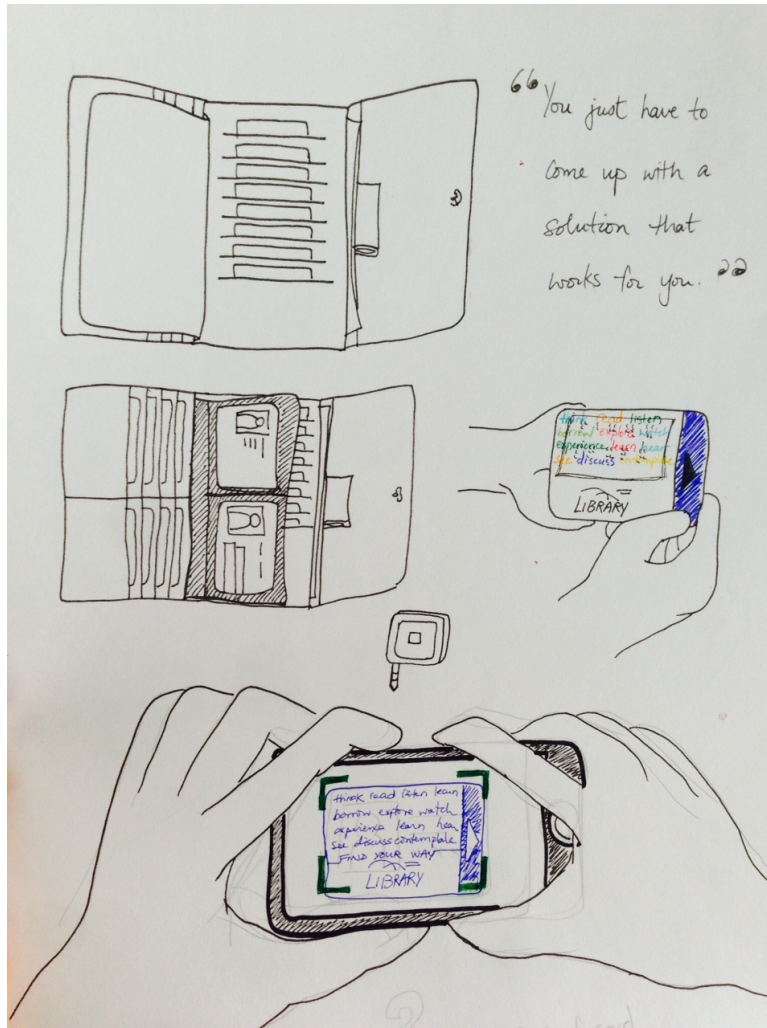 “You just have to
come up with a
solution that
works for you.”
think read listen
borrow explore watch
experience learn hear
see discuss contemplate
LIBRARY
think read listen learn
borrow explore watch
experience learn hear
see discuss contemplate
FIND YOUR WAY
LIBRARY